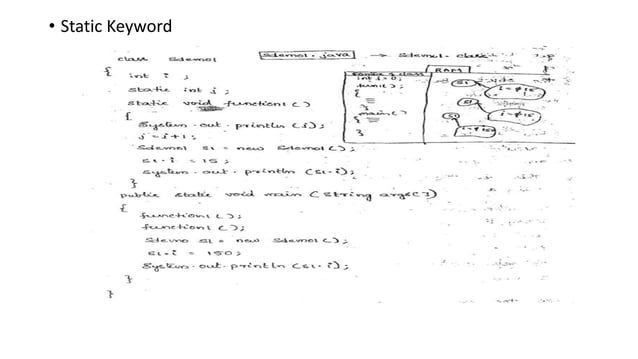 • Static Keyword
Sdemo1.java → Sdemo1.class
class Sdemo1
{
int i ;
static int j ;
static void function1 ( )
{
System.out.println (j);
j = j+1 ;
Sdemo1 s1 = new Sdemo1 ( );
s1.i = 15 ;
System.out.println (s1.i);
}
public static void main (String args[])
{
function1 ( );
function1 ( );
Sdemo s1 = new Sdemo1 ( );
s1.i = 150 ;
System.out.println (s1.i);
}
}
RAM
{
main( )
{
}
s1
s1
s1